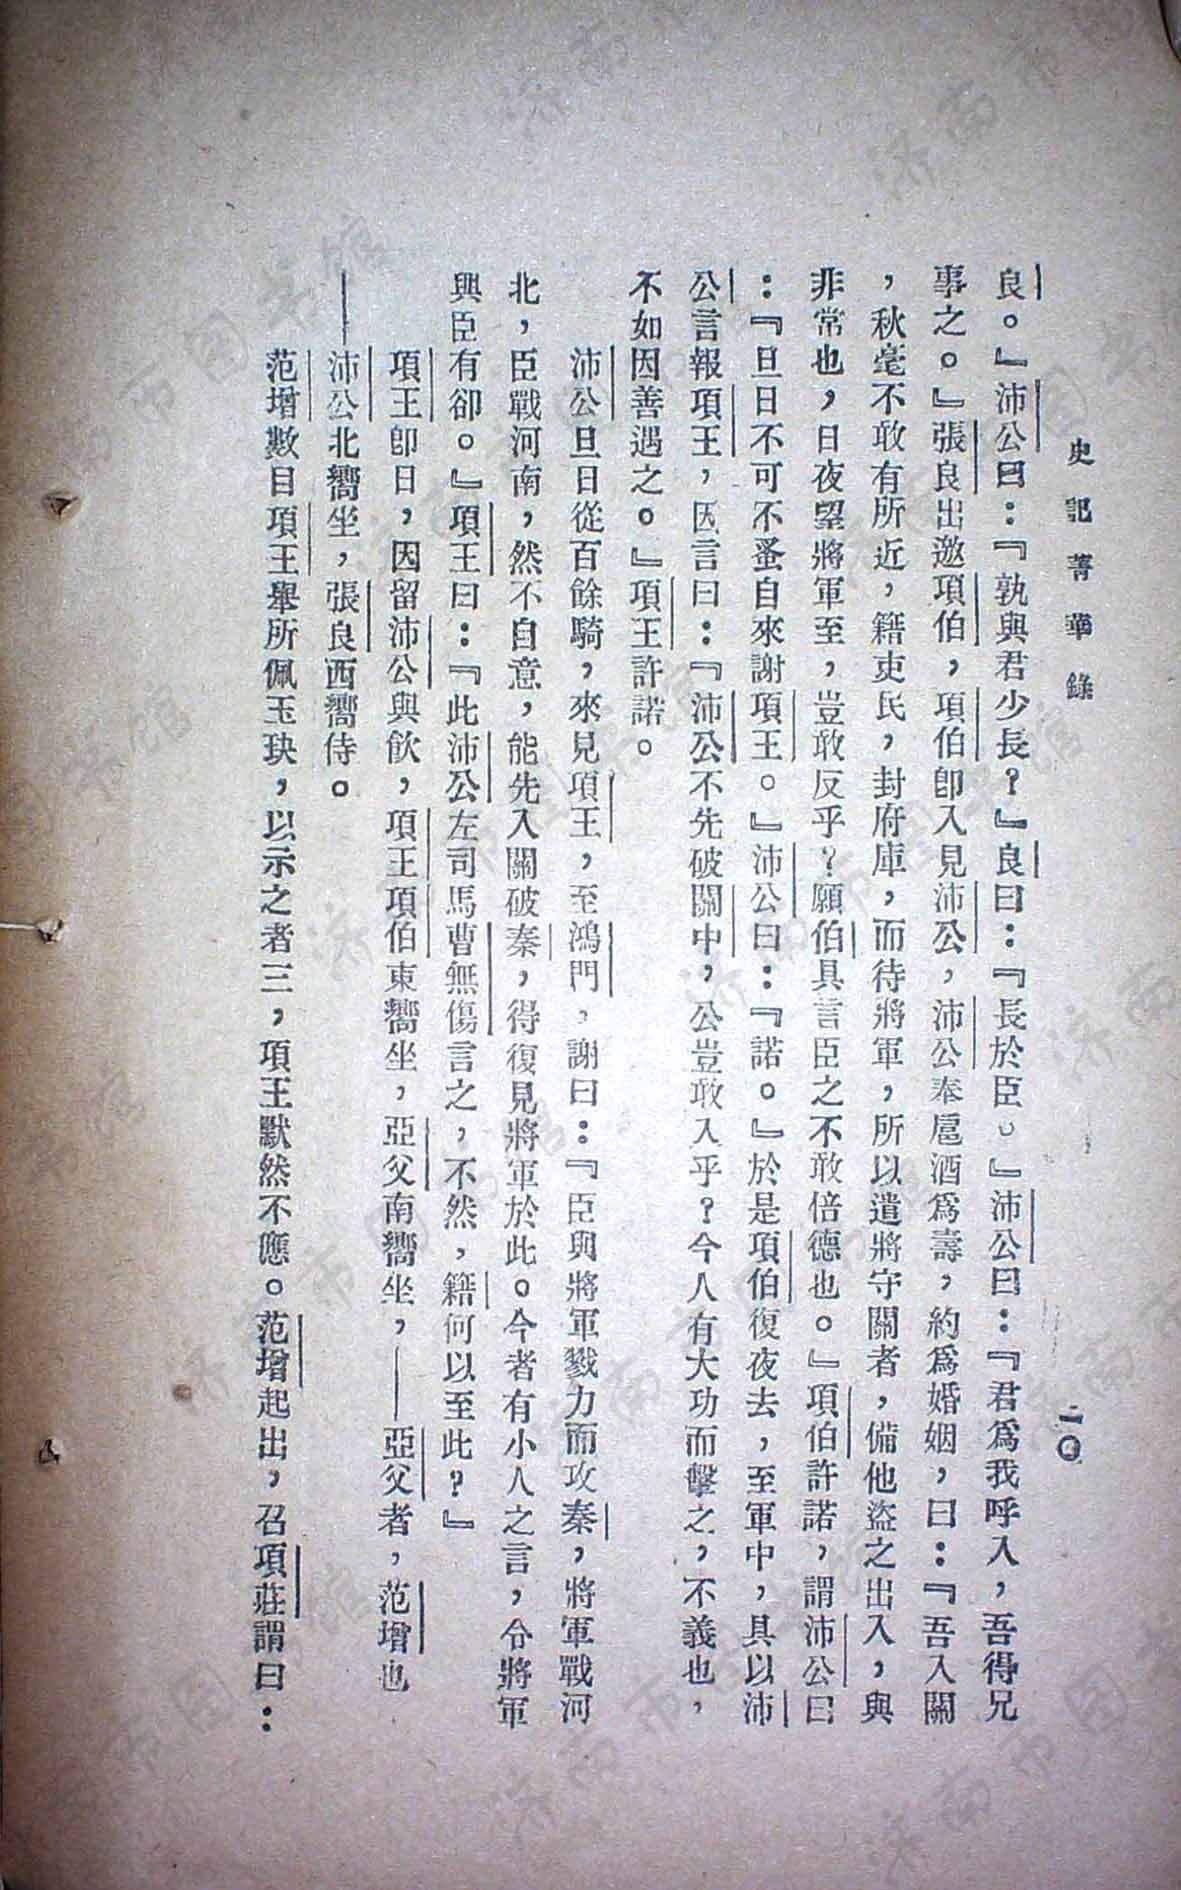 史記菁華錄
二〇
良。』沛公曰：『孰與君少長？』良曰：『長於臣。』沛公曰：『君爲我呼入，吾得兄
事之。』張良出邀項伯，項伯卽入見沛公，沛公奉巵酒爲壽，約爲婚姻，曰：『吾入關
，秋毫不敢有所近，籍吏民，封府庫，而待將軍，所以遣將守關者，備他盜之出入，與
非常也，日夜望將軍至，豈敢反乎？願伯具言臣之不敢倍德也。』項伯許諾，謂沛公曰
：『旦日不可不蚤自來謝項王。』沛公曰：『諾。』於是項伯復夜去，至軍中，具以沛
公言報項王，因言曰：『沛公不先破關中，公豈敢入乎？今人有大功而擊之，不義也，
不如因善遇之。』項王許諾。
沛公旦日從百餘騎，來見項王，至鴻門，謝曰：『臣與將軍戮力而攻秦，將軍戰河
北，臣戰河南，然不自意，能先入關破秦，得復見將軍於此。今者有小人之言，令將軍
與臣有卻。』項王曰：『此沛公左司馬曹無傷言之，不然，籍何以至此？』
項王卽日，因留沛公與飲，項王項伯東嚮坐，亞父南嚮坐，——亞父者，范增也
——沛公北嚮坐，張良西嚮侍。
范增數目項王舉所佩玉玦，以示之者三，項王默然不應。范增起出，召項莊謂曰：
济南市图书馆